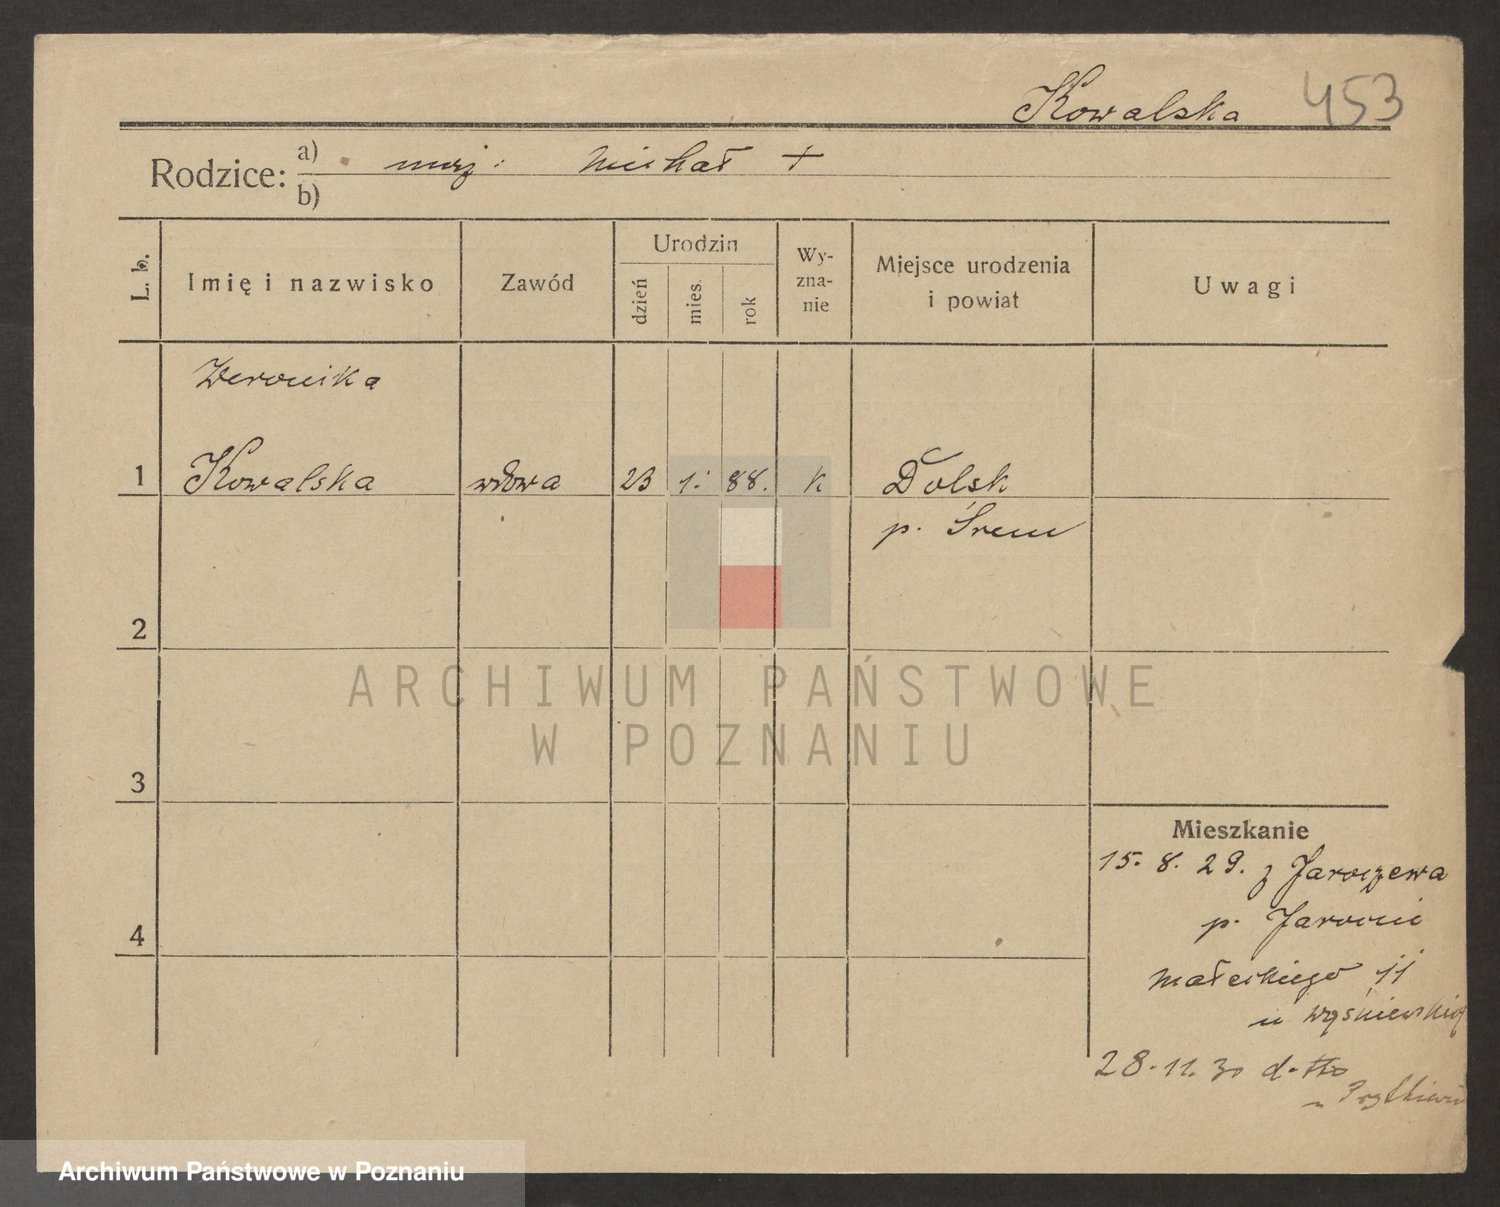 Kowalska 453
Rodzice: a) mąż: Michał +
b)
L. b.
Imię i nazwisko
Zawód
Urodzin
dzień
mies.
rok
Wy-
zna-
nie
Miejsce urodzenia
i powiat
Uwagi
Weronika
1 Kowalska wdowa 23 1. 88. K Dolsk
p. Śrem
2
ARCHIWUM PAŃSTWOWE
W POZNANIU
3
Mieszkanie
15. 8. 29. z Jaroszewa
p. Jarocin
4
Małeckiego 11
u Wyśniewskiej
28. 11. 30 d-tto
Archiwum Państwowe w Poznaniu